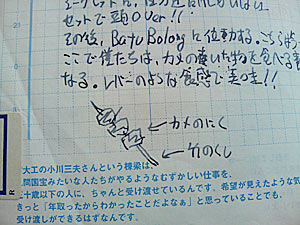 セットで頭Over!!
その後、Batu Bolongに位動する。こちらよ
ここで僕たちは、カメの焼いた物を食べる事
なる。レバーのような食感で美味!!
カメのにく
竹のくし
大工の小川三夫さんという棟梁は、
間国宝みたいな人たちがやるようなむずかしい仕事を、
二十歳以下の人に、ちゃんと受け渡せているんです。希望が見えたような気
きっと「年取ったからわかったことだよなぁ」と思っていることでも、
受け渡しができるはずなんです。
R